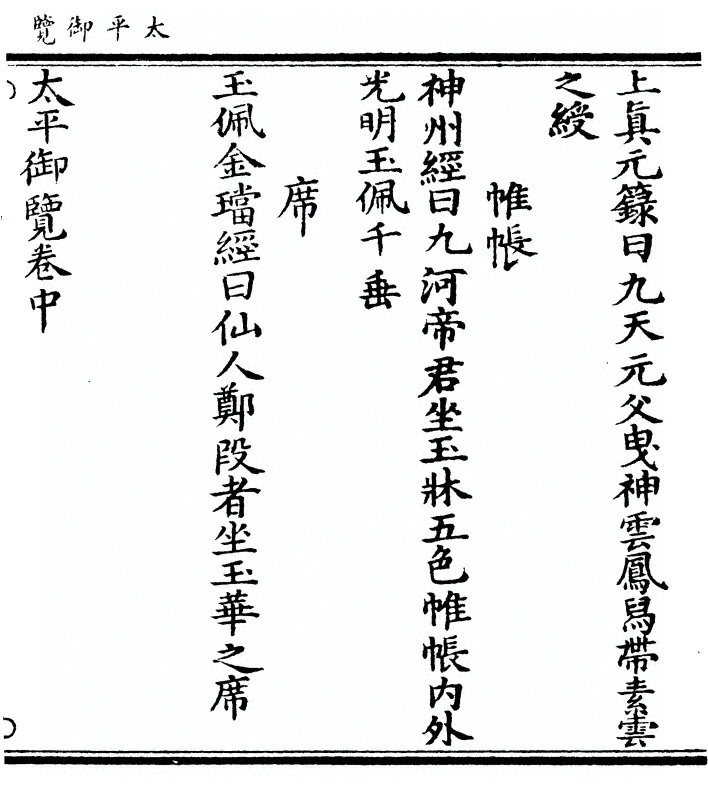 太平御覽
上眞元籙曰九天元父曳神雲鳳舄帶素雲
之綬
帷帳
神州經曰九河帝君坐玉牀五色帷帳内外
光明玉佩千垂
席
玉佩金璫經曰仙人鄭段者坐玉華之席
太平御覽卷中